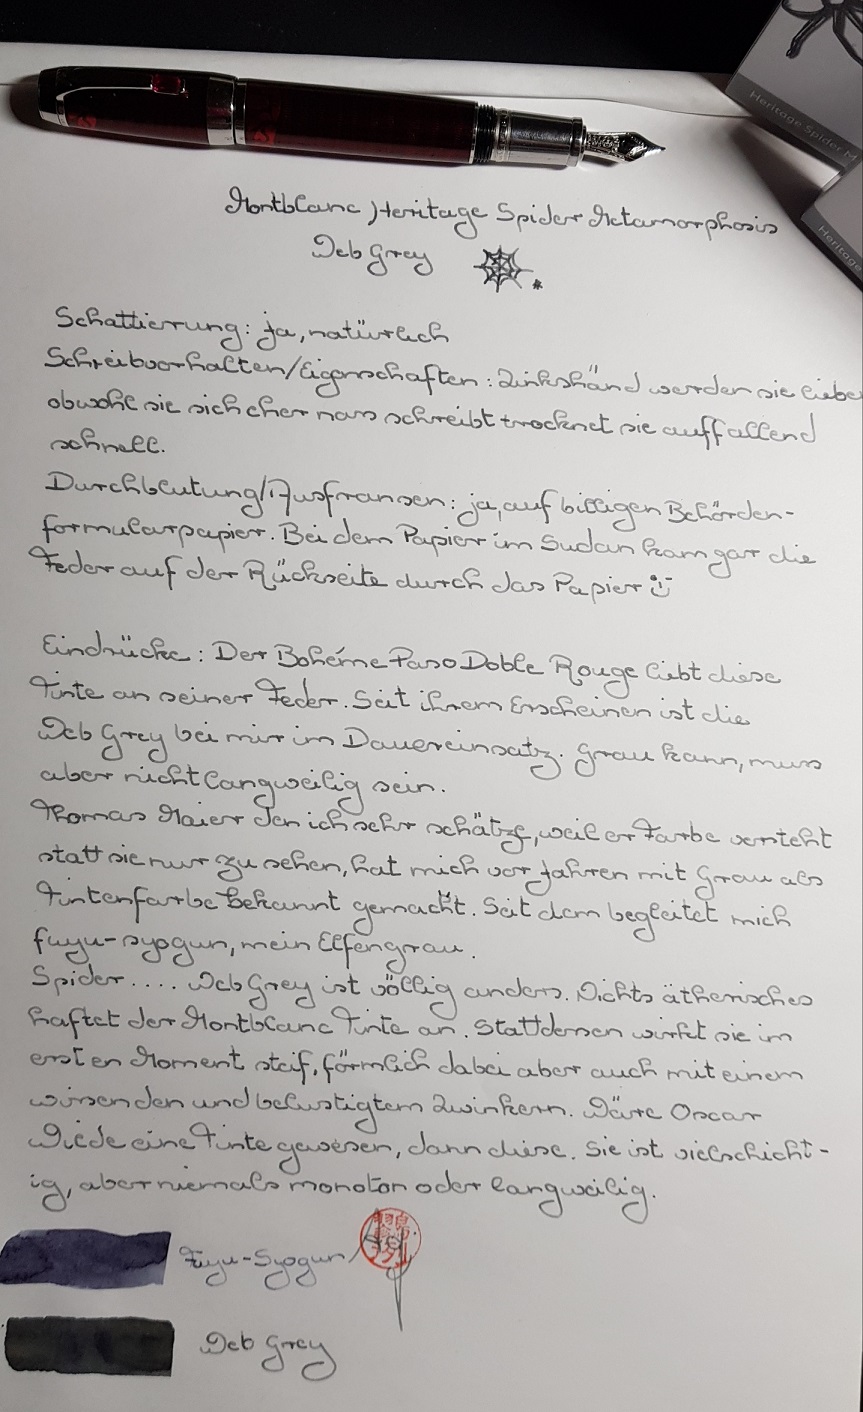 Heritage Spider M
Heritage
Montblanc Heritage Spider Metamorphosis
Web Grey
Schattierung: ja, natürlich
Schreibverhalten/Eigenschaften: Linkshänd werden sie liebe
obwohl sie sich eher nass schreibt trocknet sie auffallend
schnell.
Durchblutung/Ausfransen: ja, auf billigen Behörden-
formularpapier. Bei dem Papier im Sudan kam gar die
Feder auf der Rückseite durch das Papier
Eindrücke: Der Bohéme Paso Doble Rouge liebt diese
Tinte an seiner Feder. Seit ihrem Erscheinen ist die
Web Grey bei mir im Dauereinsatz. Grau kann, muss
aber nicht langweilig sein.
Thomas Maier den ich sehr schätze, weil er Farbe versteht
statt sie nur zu sehen, hat mich vor Jahren mit Grau als
Tintenfarbe bekannt gemacht. Seit dem begleitet mich
fuyu-syogun, mein Elfengrau.
Spider.... Web Grey ist völlig anders. Nichts ätherisches
haftet der Montblanc Tinte an. Stattdessen wirkt sie im
ersten Moment steif, förmlich dabei aber auch mit einem
wissenden und belustigtem Zwinkern. Wäre Oscar
Wilde eine Tinte gewesen, dann diese. Sie ist vielschicht-
ig, aber niemals monoton oder langweilig.
Fuyu-Syogun
Web Grey